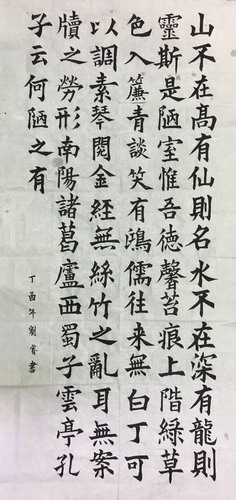 山不在髙有仙則名水不在深有龍則
靈斯是陋室惟吾德馨苔痕上階綠草
色入簾青談笑有鴻儒往来無白丁可
以調素琴閱金經無絲竹之亂耳無案
牘之勞形南陽諸葛廬西蜀子雲亭孔
子云何陋之有
丁酉年劉睿書